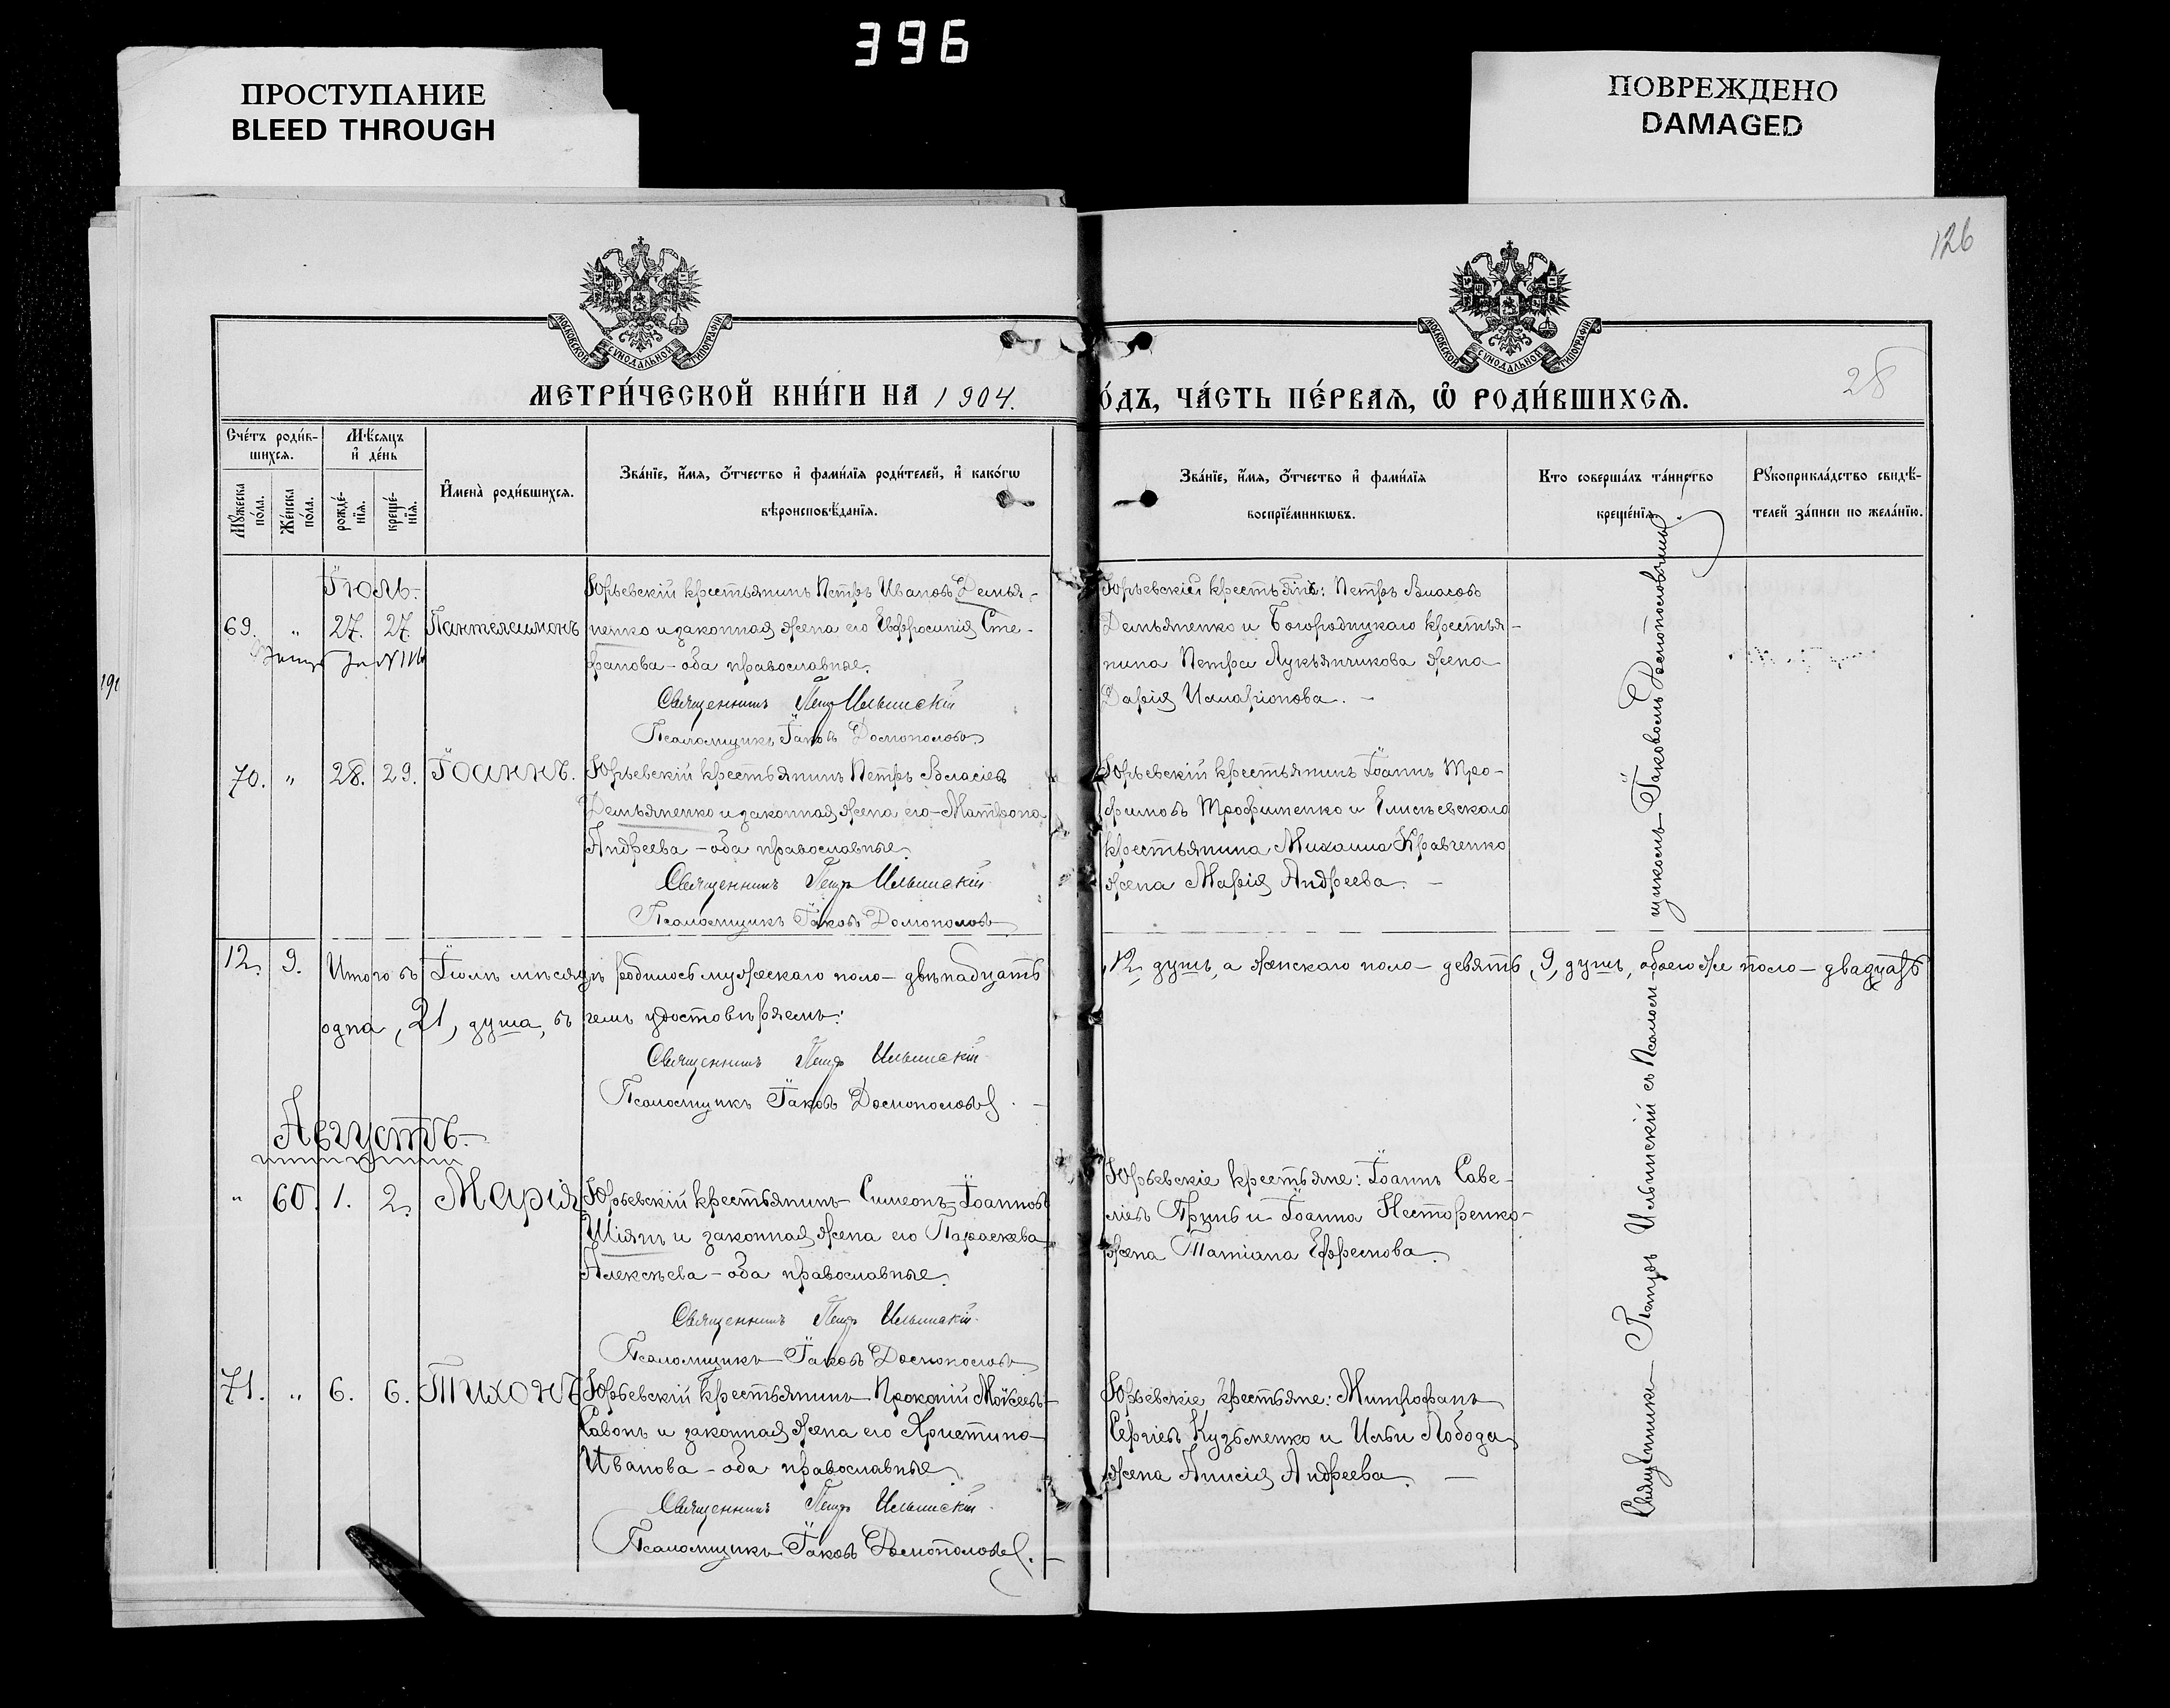 396
ПРОСТУПАНИЕ
BLEED THROUGH
ПОВРЕЖДЕНО
DAMAGED
126
28
МОСКОВСКОЙ СУНОДАЛЬНОЙ ТИПОГРАФИИ
МОСКОВСКОЙ СУНОДАЛЬНОЙ ТИПОГРАФИИ
МЕТРИ́ЧЕСКОЙ КНИ́ГИ НА 1904.
О́ДЪ, ЧА́СТЬ ПЕ́РВАѦ, Ѡ҆ РОДИ́ВШИХСѦ.
Сче́тъ роди́в-
шихсѧ.
Мѣ́сѧцъ
и҆ де́нь
Мꙋ́жеска
по́ла.
Же́нска
по́ла.
рожде́-
нїѧ.
креще́-
нїѧ.
И҆мена̀ роди́вшихсѧ.
Зва́нїе, и҆́мѧ, ѻ҆́тчество и҆ фами́лїѧ роди́телей, и҆ како́гѡ
вѣроисповѣ́данїѧ.
Зва́нїе, и҆́мѧ, ѻ҆́тчество и҆ фами́лїѧ
воспрїе́мникѡвъ.
Кто̀ соверша́лъ та́инство
креще́нїѧ.
Рꙋкоприкла́дство свидѣ́-
телей за́писи по жела́нїю.
Іюль.
69. " 27. 27. Пантелеимонъ
Юрьевскій крестьянинъ Петръ Ивановъ Демья-
ненко и законная жена его Евфросинія Сте-
фанова - оба православные.
Священникъ Петръ Ильинскій
Псаломщикъ Іаковъ Домонтоповъ
Юрьевскіе крестьяне: Петръ Власовъ
Демьяненко и Богородицкаго крестья-
нина Петра Лукьянчикова жена
Дарія Иларіонова. -
70. " 28. 29. Іоаннъ.
Юрьевскій крестьянинъ Петръ Власіевъ
Демьяненко и законная жена его - Матрона
Андреева - оба православные.
Священникъ Петръ Ильинскій
Псаломщикъ Іаковъ
Юрьевскій крестьянинъ Іоаннъ Тро-
фимовъ Трофименко и Елисѣевскаго
крестьянина Михаила Кравченко
жена Марія Андреева. -
12. 9. Итого въ Іюлѣ мѣсяцѣ родилось мужескаго пола - двѣнадцать
, 12, душъ, а женскаго пола - девять, 9, душъ, обоего же пола - двадцать
одна, 21, душа, въ чемъ удостовѣряемъ:
Священникъ Петръ Ильинскій
Псаломщикъ Іаковъ
Августъ.
" 60. 1. 2. Марія
Юрьевскій крестьянинъ Симеонъ Іоанновъ
Шіянъ и законная жена его Параскева
Алексѣева - оба православные.
Священникъ Петръ Ильинскій
Псаломщикъ Іаковъ
Юрьевскіе крестьяне: Іоаннъ Саве-
ліевъ и Іоанна Несторенко
жена Татіана Ефремова.
71. " 6. 6. Тихонъ
Юрьевскій крестьянинъ Прокопій Моѵсеевъ
Савонъ и законная жена его Христина
Иванова - оба православные.
Священникъ Петръ Ильинскій
Псаломщикъ Іаковъ
Юрьевскіе крестьяне: Митрофанъ
Сергіевъ Кузьменко и Ильи Лобода
жена Анисія Андреева. -
Священникъ Петръ Ильинскій съ Псаломщикомъ Іаковомъ